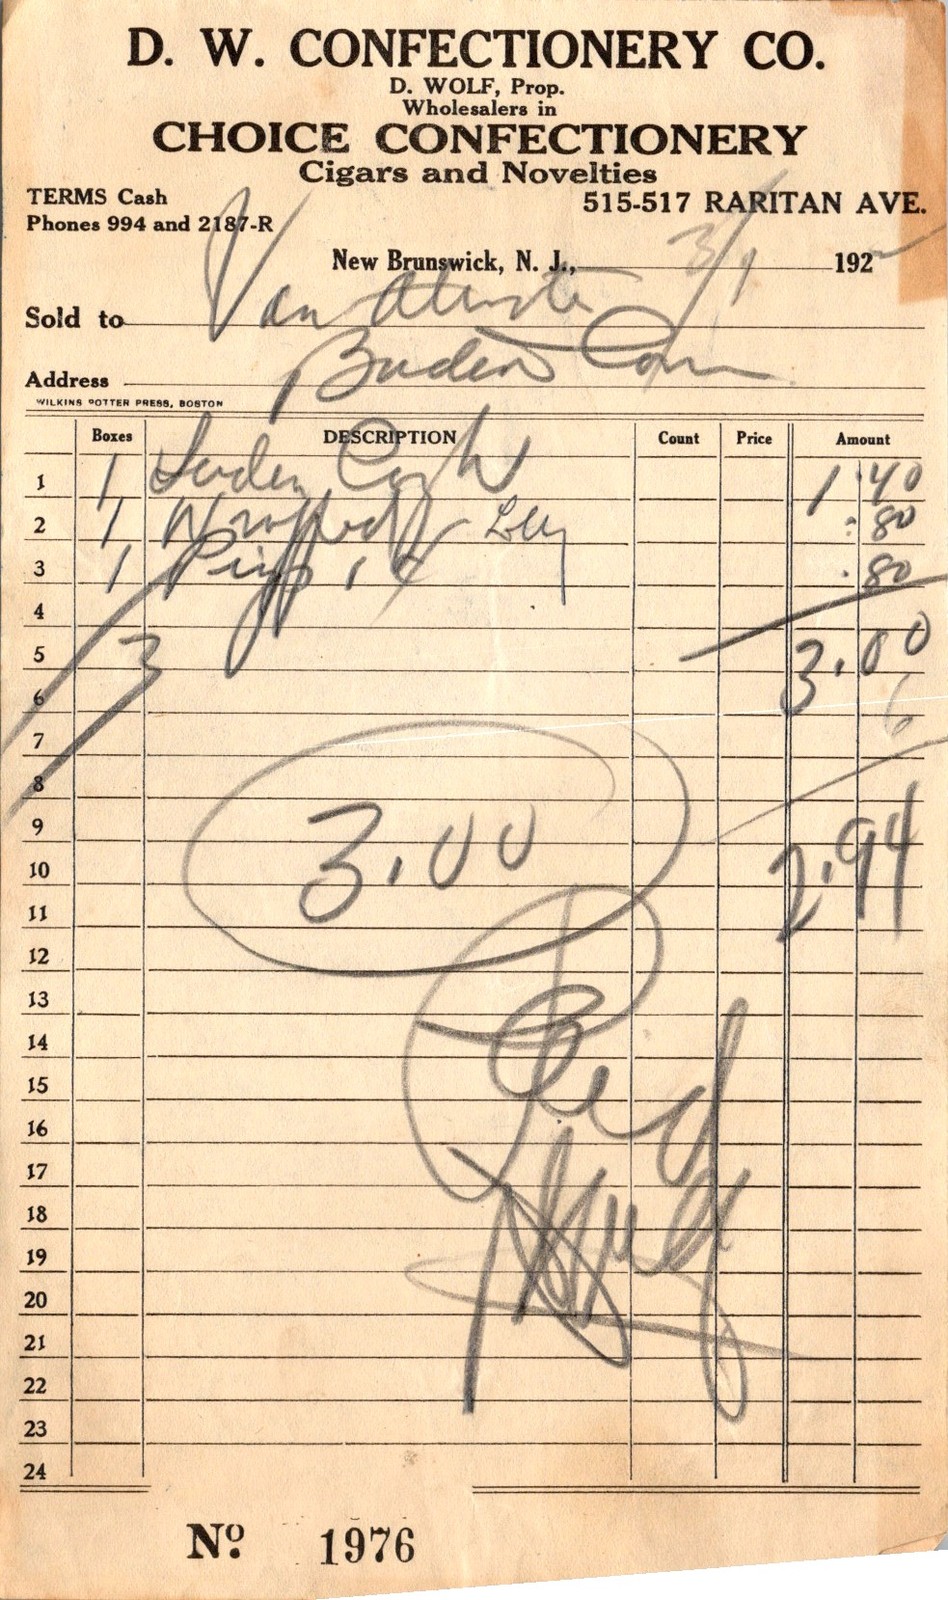 D. W. CONFECTIONERY CO.
D. WOLF, Prop.
Wholesalers in
CHOICE CONFECTIONERY
Cigars and Novelties
TERMS Cash
515-517 RARITAN AVE.
Phones 994 and 2187-R
New Brunswick, N. J., 3/1 192
Sold to Van
Address
WILKINS POTTER PRESS, BOSTON
Boxes DESCRIPTION Count Price Amount
1 1 1.40
2 1 Wrapped Lolly .80
3 1 .80
4
5 3 3.00
6 6
7
8
9 3.00 2.94
10
11
12
13
14
15
16
17
18
19
20
21
22
23
24
No. 1976